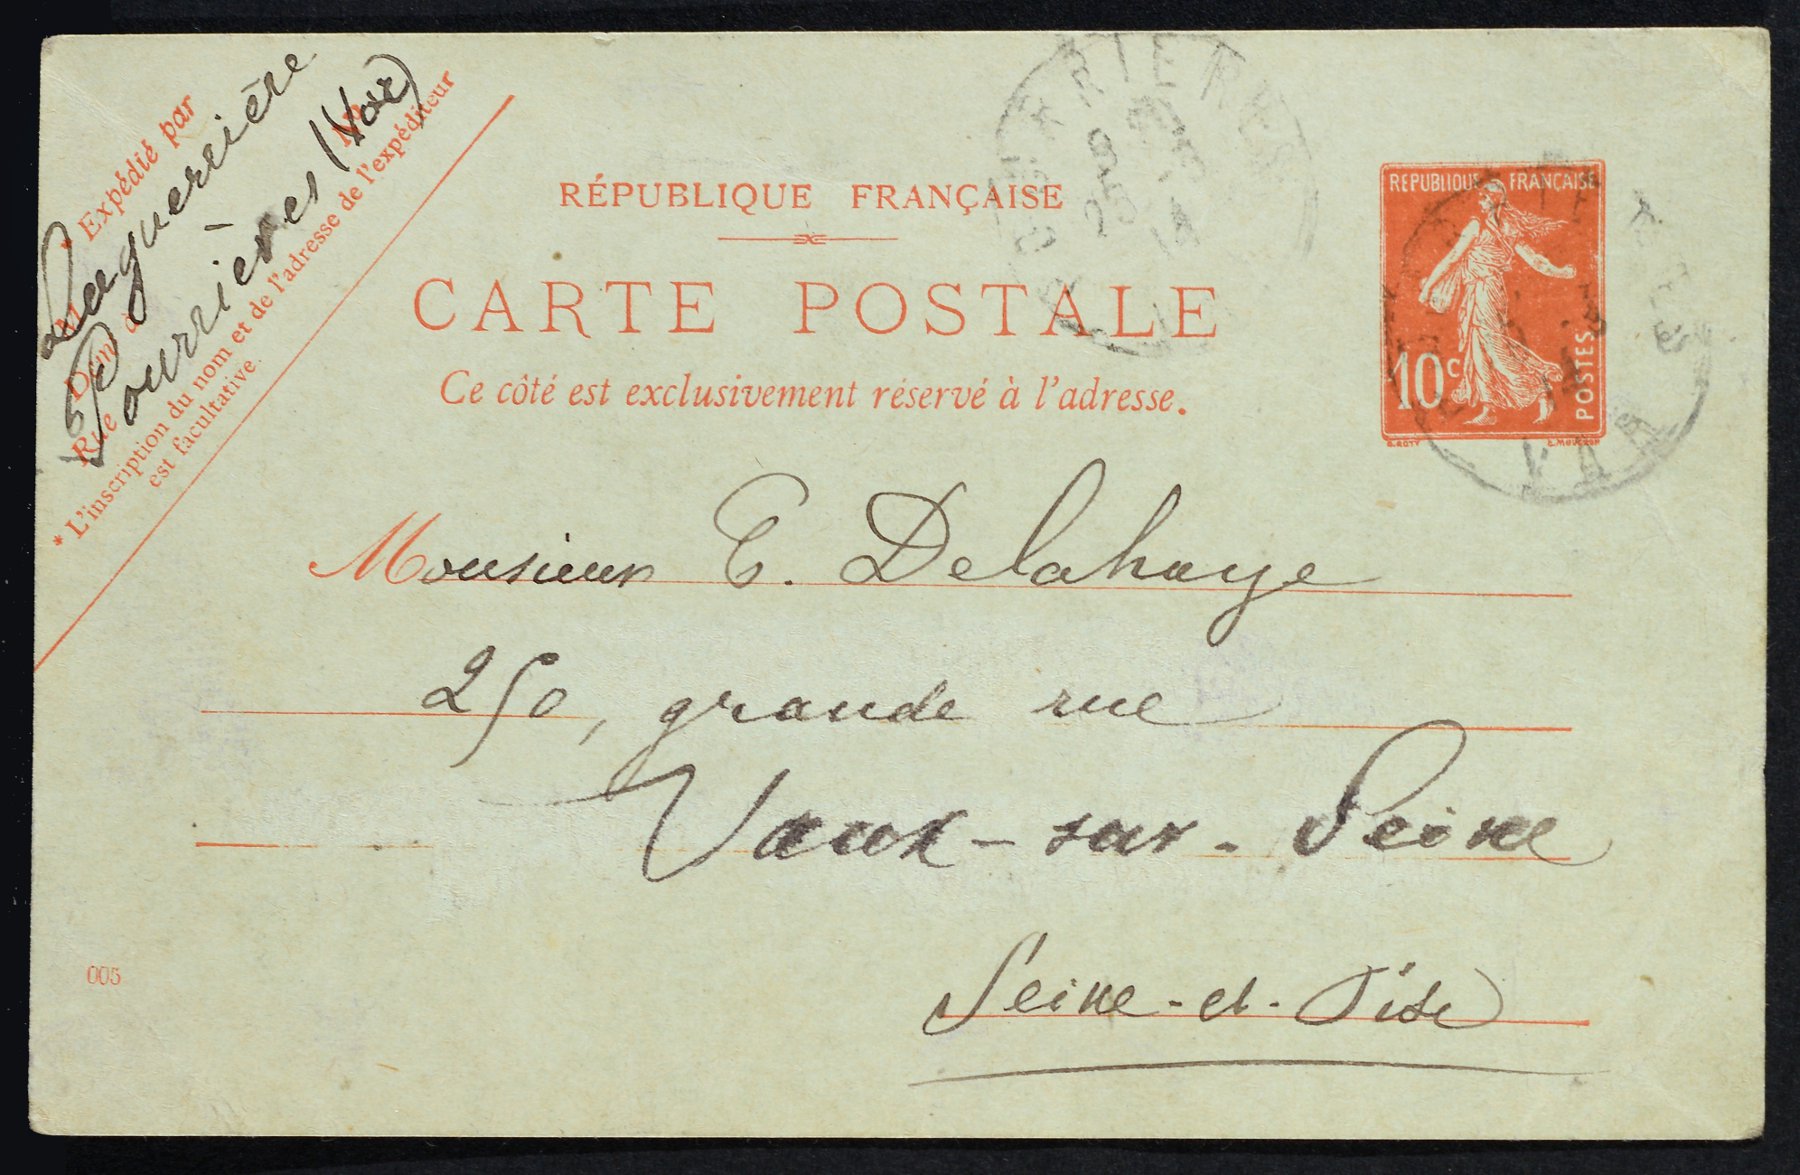 * Expédié par
M
Laguerrière
Demt à
Pourrières (Var)
Rue
No
* L'inscription du nom et de l'adresse de l'expéditeur
est facultative.
RÉPUBLIQUE FRANÇAISE
CARTE POSTALE
Ce côté est exclusivement réservé à l'adresse.
REPUBLIQUE FRANÇAISE
10c
POSTES
O. ROTY
E. MOUCHON
VAR
Monsieur E. Delahaye
250, grande rue
Vaux-sur-Seine
Seine-et-Oise
005